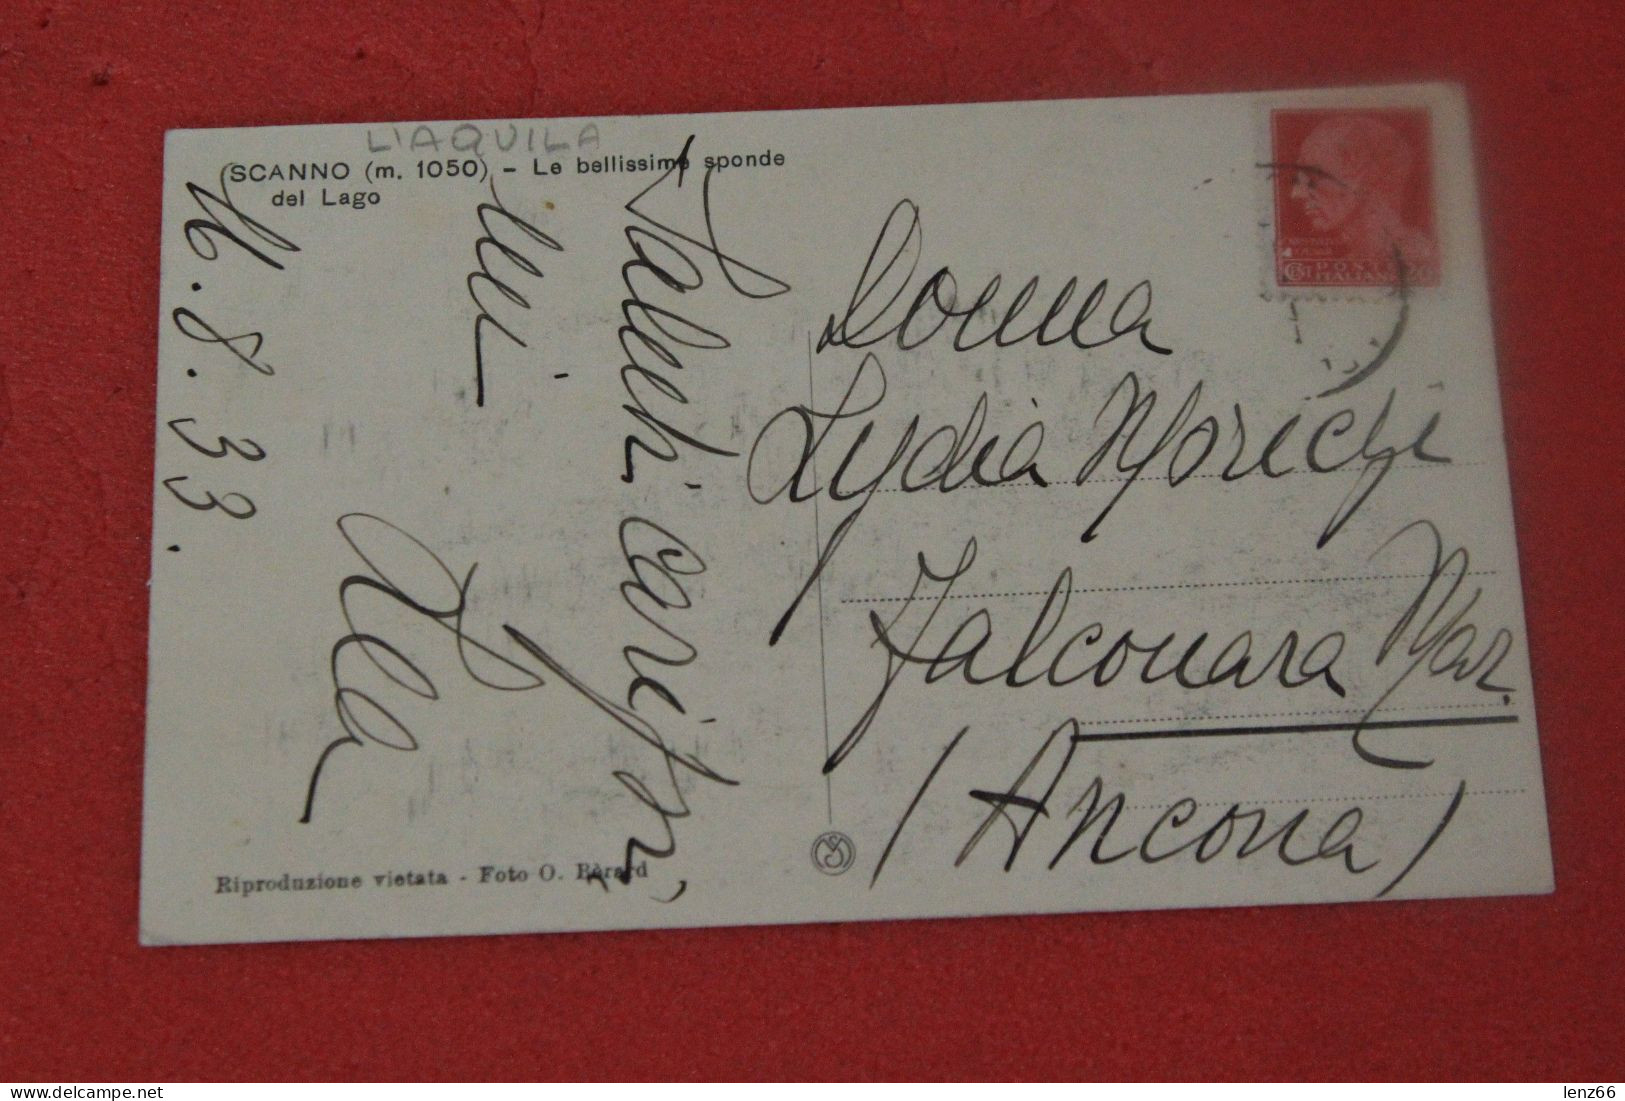 L'AQUILA
SCANNO (m. 1050) - Le bellissime sponde
del Lago
8.33.
Saluti carissimi
Donna
Lydia Morichi
Falconara Mar.
(Ancona)
POSTE
ITALIANE 20
Riproduzione vietata - Foto O. Bèrard
lenz66